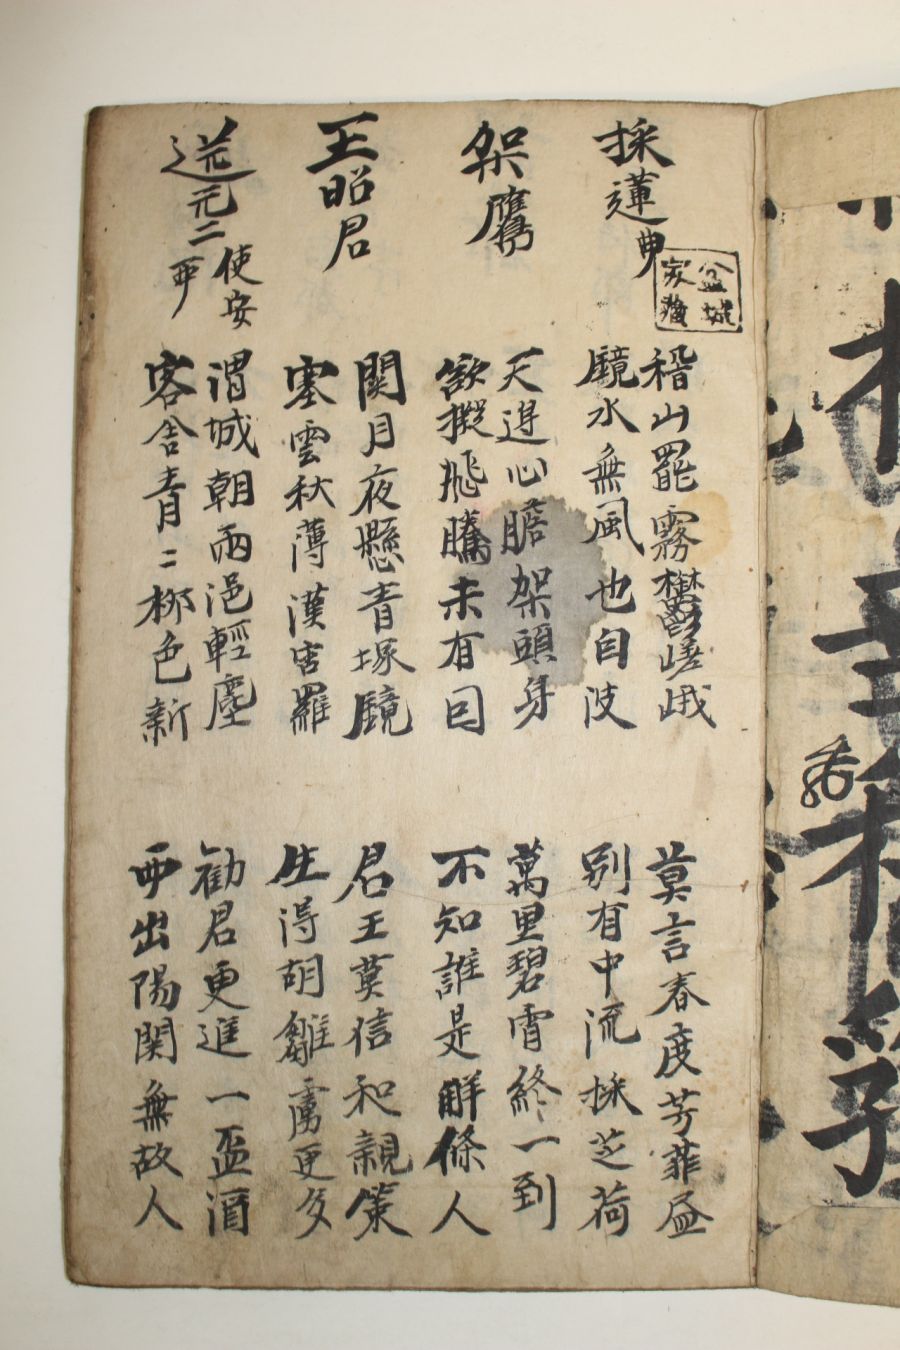 採蓮曲
盆城
家藏
稽山罷霧欝嵯峨
鏡水無風也自波
莫言春度芳菲盡
別有中流採芝荷
架鷹
天邊心膽架頭身
欲擬飛騰未有因
萬里碧霄終一到
不知誰是解條人
王昭君
関月夜懸青塚鏡
塞雲秋薄漢宮羅
君王莫信和親策
生得胡雛虜更多
送元元二使安
西
渭城朝雨浥輕塵
客舍青〻柳色新
勸君更進一盃酒
西出陽関無故人